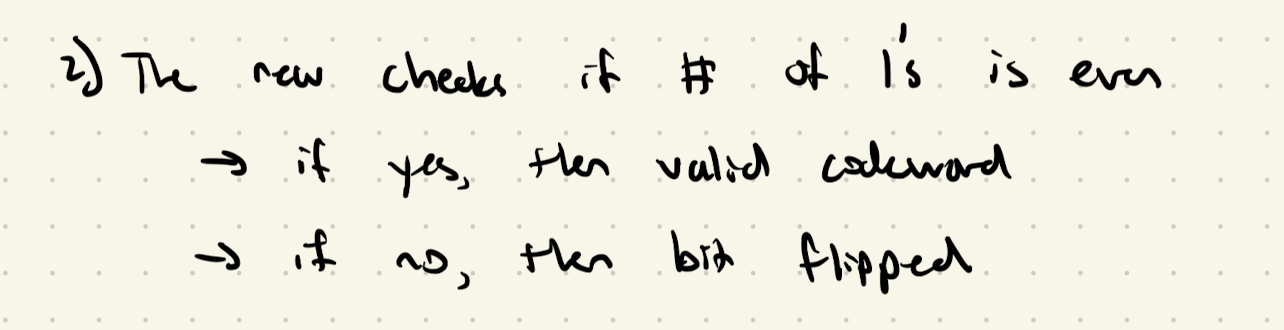 2) The new checks if # of 1's is even
→ if yes, then valid codeword
→ if no, then bit flipped